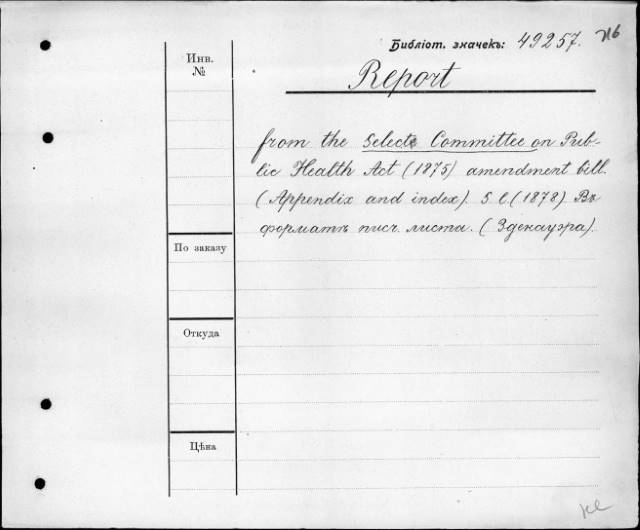 Библіот. значекъ: 49257. 716
Инв. №
Report
from the Select Committee on Pub-
lic Health Act (1875) amendment bill.
(Appendix and index). S. l. (1878) Въ
форматѣ писч. листа. (Эденауэра).
По заказу
Откуда
Цѣна